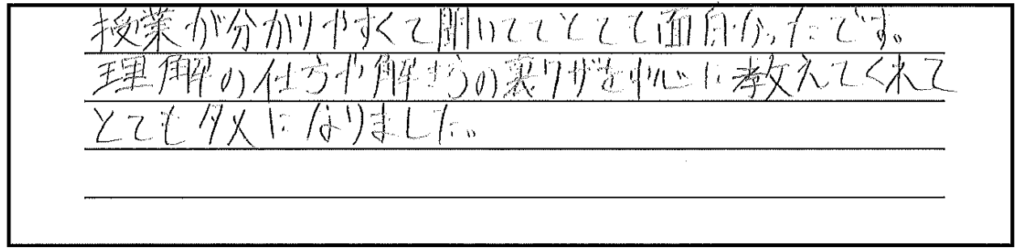 授業が分かりやすくて聞いててとても面白かったです。
理解の仕方や解き方の裏ワザを中心に教えてくれて
とてもタメになりました。